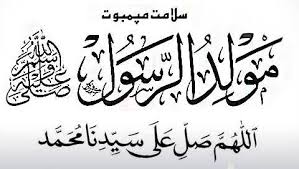 سلامت ميمبوت
مَولِدُ الرَّسُول صلى الله عليه وسلم
اَللّٰهُمَّ صَلِّ عَلَى سَيِّدِنَا مُحَمَّد